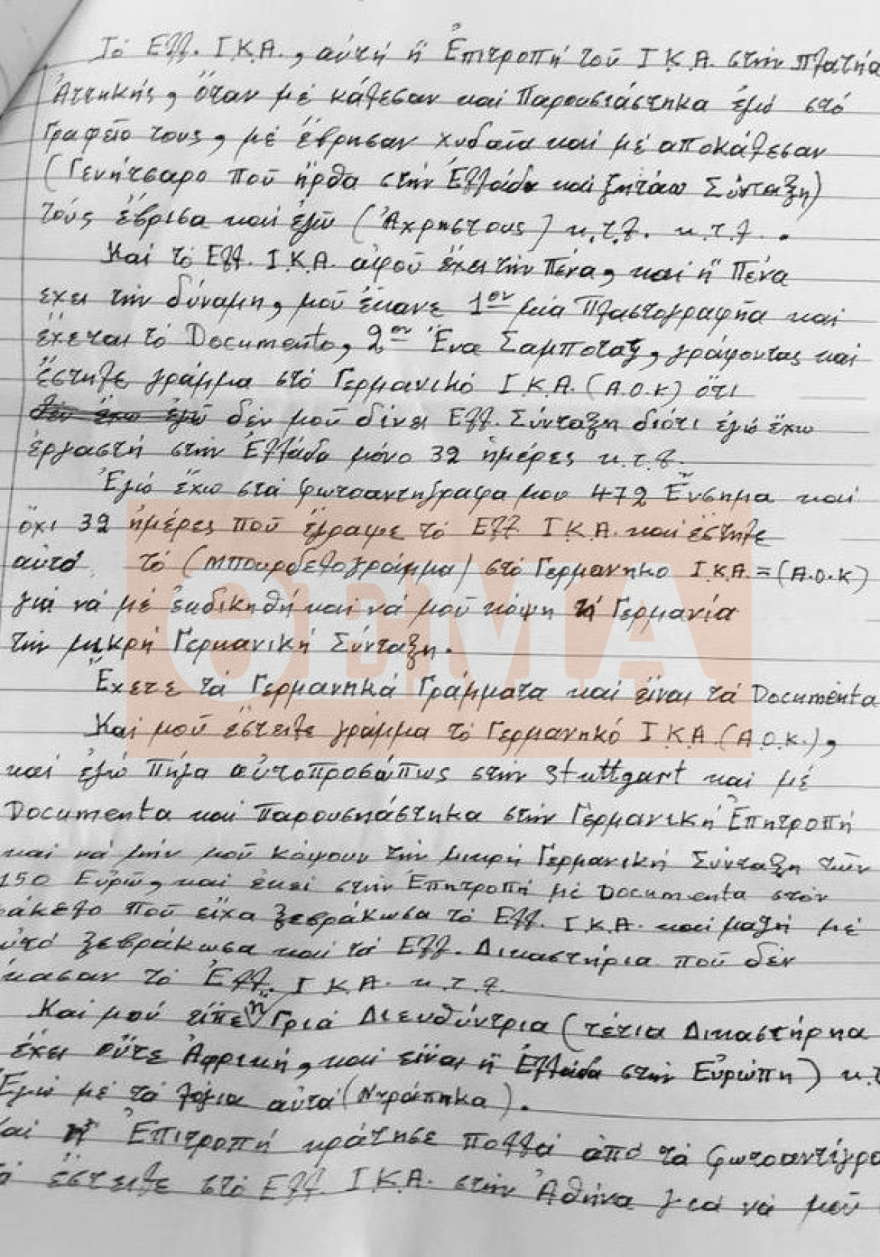 Τό Ελλ. Ι.Κ.Α., αὐτή ἡ Ἐπιτροπή τοῦ Ι.Κ.Α. στήν πλατήα
Ἀττηκής, ὅταν μέ κάλεσαν καί Παρουσιάστηκα ἐγώ στό
Γραφεῖο τους, μέ ἔβρησαν χυδαῖα καί μέ αποκάλεσαν
(Γενήτσαρο πού ἤρθα στήν Ἑλλάδα καί ζητάω Σύνταξη)
τούς ἔβρισα καί ἐγώ (Ἀχρηστους) κ.τ.λ. κ.τ.λ.
Καί τό Ελλ. Ι.Κ.Α. αφοῦ ἔχει τήν Πένα, καί ἡ Πένα
ἐχει τήν δύναμη, μοῦ ἔκανε 1ον μία Πλαστογραφηα καί
ἔχεται τό Documento, 2ον Ἕνα Σαμποταζ, γράφοντας καί
ἔστηλε γράμμα στό Γερμανικό Ι.Κ.Α. (Α.Ο.Κ) ὅτι
δέν ἔχω ἐγώ δέν μοῦ δίνει Ελλ. Σύνταξη διότι ἐγώ ἔχω
ἐργαστή στήν Ἑλλάδα μόνο 32 ἡμέρες κ.τ.λ.
Ἐγώ ἔχω στά φωτοαντηγραφα μου 472 Ἔνσημα καί
ὄχι 32 ἡμέρες πού ἔγραψε τό Ελλ Ι.Κ.Α. καί ἔστηλε
αὐτό τό (μπουρδελογράμμα) στό Γερμανηκο Ι.Κ.Α.=(Α.Ο.Κ)
γιά νά μέ ἐκδικηθῆ καί νά μοῦ κόψη ἡ Γερμανία
τήν μικρή Γερμανική Σύνταξη.
Ἔχετε τά Γερμανηκά Γράμματα καί εἶναι τά Documenta
Καί μοῦ ἔστειλε γράμμα τό Γερμανηκό Ι.Κ.Α. (Α.Ο.Κ.),
καί ἐγώ πῆγα αὐτοπροσώπως στήν Stuttgart καί μέ
Documenta καί παρουσηάστηκα στήν Γερμανική Ἐπητροπή
καί νά μήν μοῦ κόψουν τήν μικρή Γερμανική Σύνταξη τῶν
150 Εὐρώ, καί ἐκεί στήν Ἐπητροπή μέ Documenta στόν
φάκελο πού εἶχα ξεβράκωσα τό Ελλ. Ι.Κ.Α. καί μαζή μέ
αὐτό ξεβράκωσα καί τά Ελλ. Δικαστήρια πού δέν
κασαν τό Ἑλλ. Ι.Κ.Α. κ.τ.λ.
Καί μού εἶπε ἡ Γριά Διευθύντρια (τέτια Δικαστήρηα
ἔχει οὔτε Ἀφρική, καί εἶναι ἡ Ἑλλάδα στήν Εὐρώπη) κ.τ
Ἐγώ μέ τά λόγια αὐτά (Ντράπηκα).
Καί ἡ Ἐπιτροπή κράτησε πολλά ἀπό τά φωτοαντίγρα
τά ἔστειλε στό Ελλ. Ι.Κ.Α. στήν Ἀθήνα γιά νά μοῦ
ΘΕΜΑ